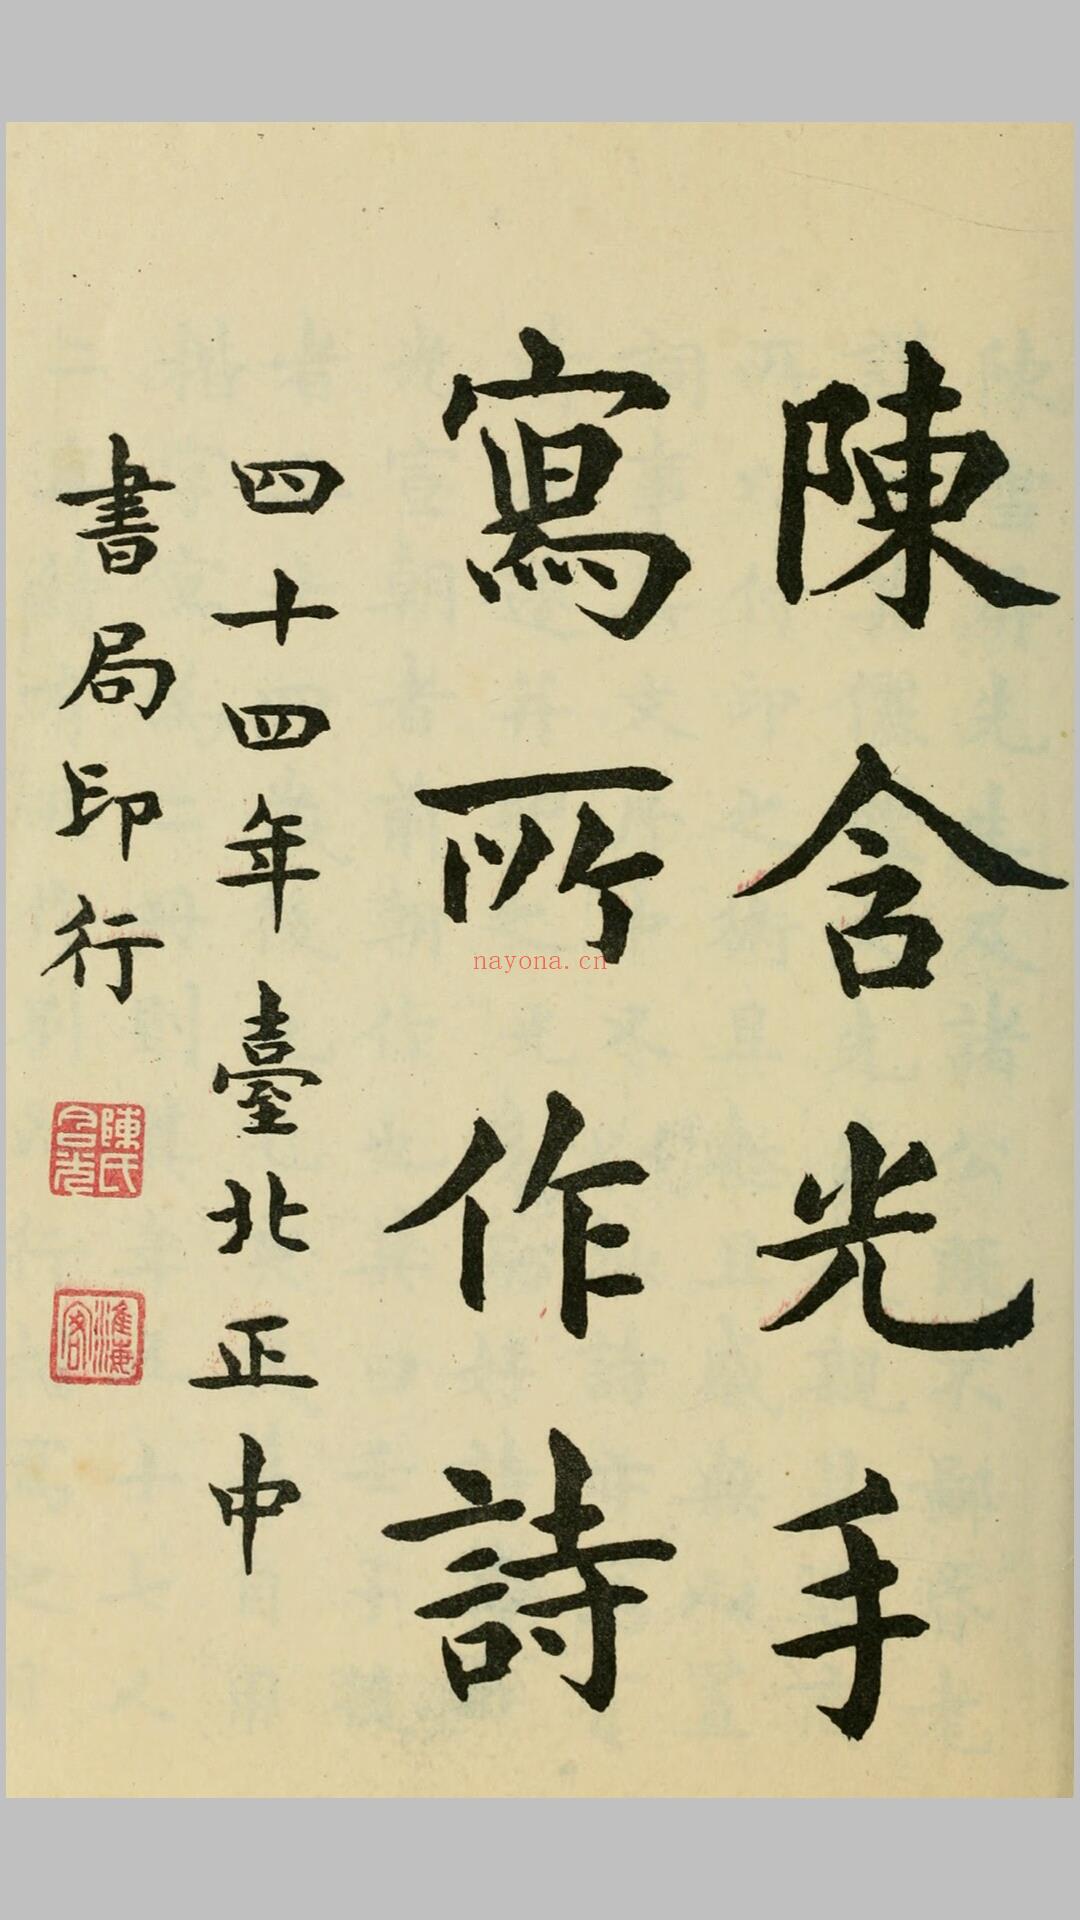 陳含光手
寫所作詩
四十四年臺北正中
書局印行
陳氏含光
淮海客
nayona.cn